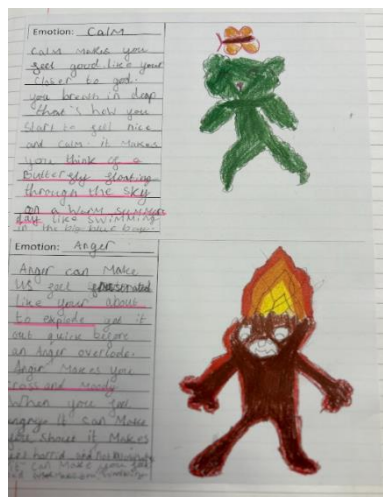 Emotion: Calm
Calm makes you
feel good like your
closer to god.
you breath in deep
that's how you
start to feel nice
and calm. it makes
you think of a
Butterfly floating
through the sky
on a warm summers
day like swimming
in the big blue
Emotion: Anger
Anger can Make
us feel
like your about
to explode get it
out quick before
an Anger overlode.
Anger Makes you
cross and Moody
When you feel
angry it can Make
you shout it Makes
horrid
it can Make you feel